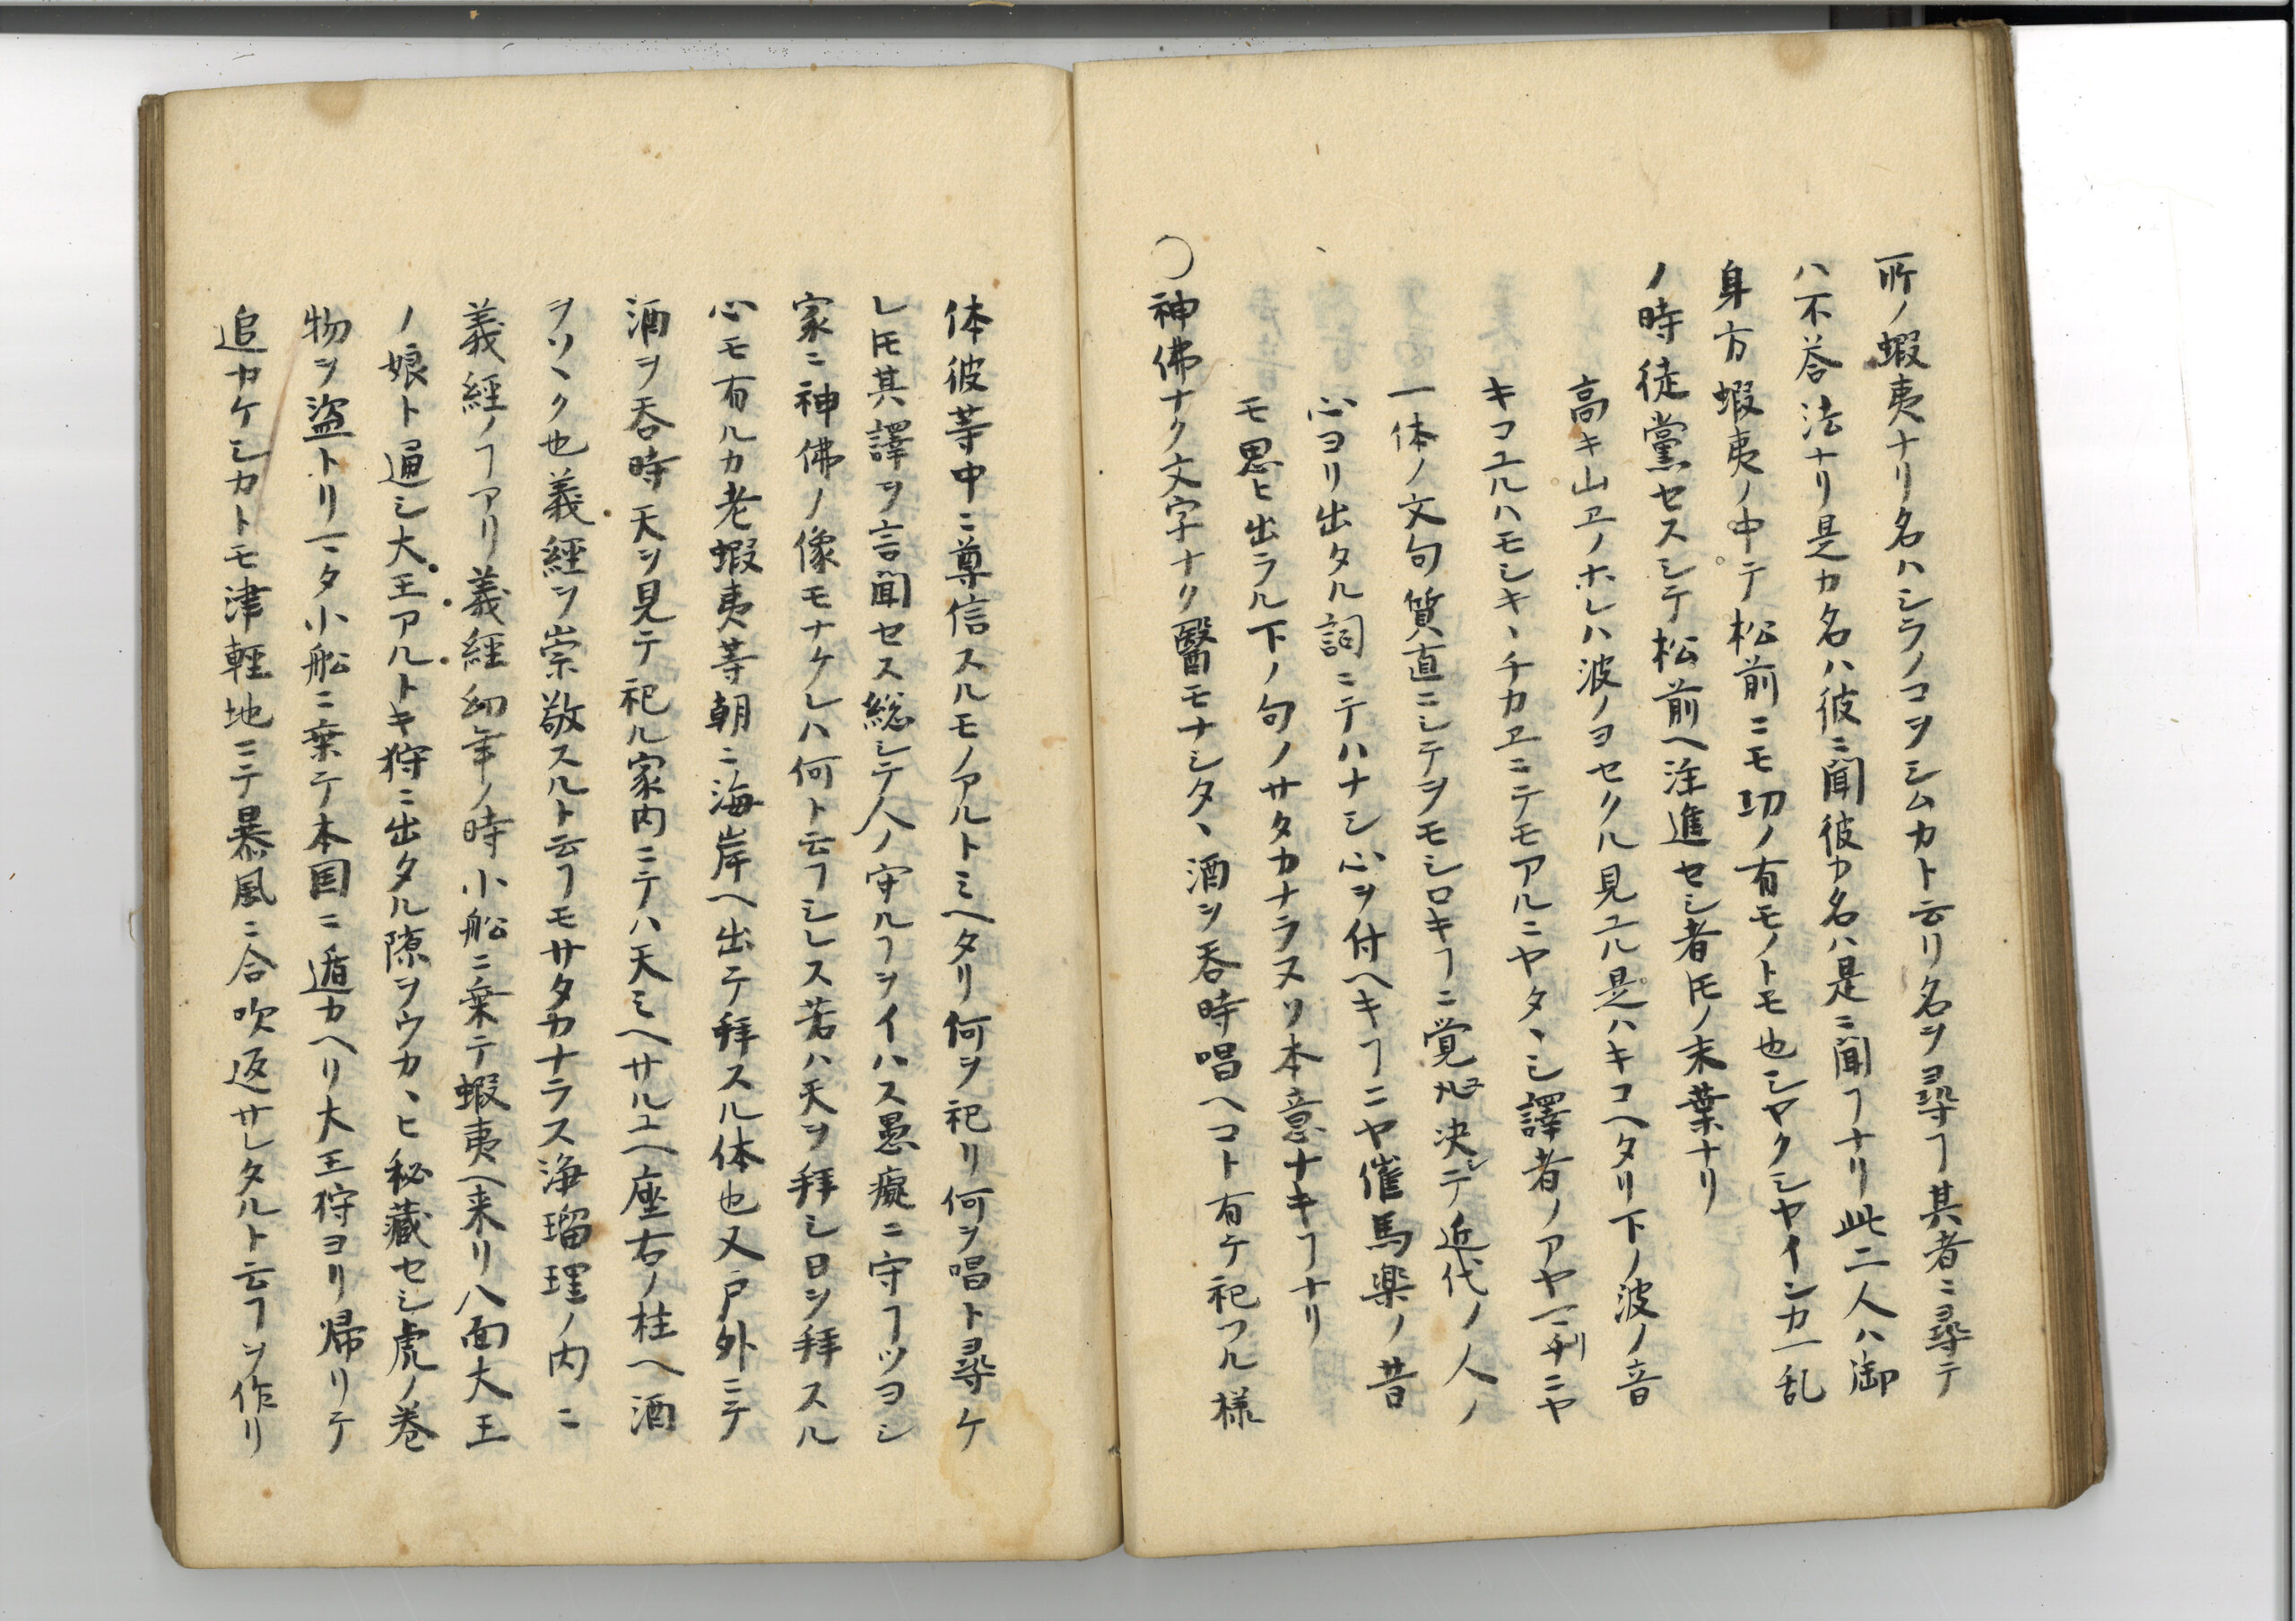 所ノ蝦夷ナリ名ハシラノコヲシムカト云リ名ヲ尋ヿ其者ニ尋テ
ハ不荅法ナリ是カ名ハ彼ニ聞彼カ名ハ是ニ聞ヿナリ此二人ハ御
身方蝦夷ノ中テ松前ニモ功ノ有モノトモ也シヤクシヤインカ一乱
ノ時徒黨セスシテ松前ヘ注進セシ者𪜈ノ末葉ナリ
高キ山ヱノホレハ波ノヨセクル見ユル是ハキコヘタリ下ノ波ノ音
キコユルハモシキヽチカヱニテモアルニヤタヽシ譯者ノアヤマチニヤ
一体ノ文句質直ニシテヲモシロキヿニ覚ユ决シテ近代ノ人ノ
心ヨリ出タル詞ニテハナシ心ヲ付ヘキヿニヤ催馬楽ノ昔
モ思ヒ出ラル下ノ句ノサタカナラヌソ本意ナキヿナリ
○神佛ナク文字ナク醫モナシタヽ酒ヲ呑時唱ヘコト有テ祀ツル様
体彼等中ニ尊信スルモノアルトミヘタリ何ヲ祀リ何ヲ唱ト尋ケ
レ𪜈其譯ヲ言聞セス総シテ人ノ守ルヿヲイハス愚癡ニ守ヿツヨシ
家ニ神佛ノ像モナケレハ何ト云ヿシレス若ハ天ヲ拜シ日ヲ拜スル
心モ有ルカ老蝦夷等朝ニ海岸ヘ出テ拜スル体也又戸外ニテ
酒ヲ呑時天ヲ見テ祀ル家内ニテハ天ミヘサルユヘ座右ノ柱ヘ酒
ヲソヽク也義經ヲ崇敬スルト云ヿモサタカナラス浄瑠理ノ内ニ
義經ノヿアリ義經幼年ノ時小船ニ乗テ蝦夷ヘ来リ八面大王
ノ娘ト通シ大王アルトキ狩ニ出タル隙ヲウカヽヒ秘藏セシ虎ノ巻
物ヲ盗トリマタ小船ニ乗テ本国ニ遁カヘリ大王狩ヨリ帰リテ
追カケシカトモ津軽地ニテ暴風ニ合吹返サレタルト云ヿヲ作リ